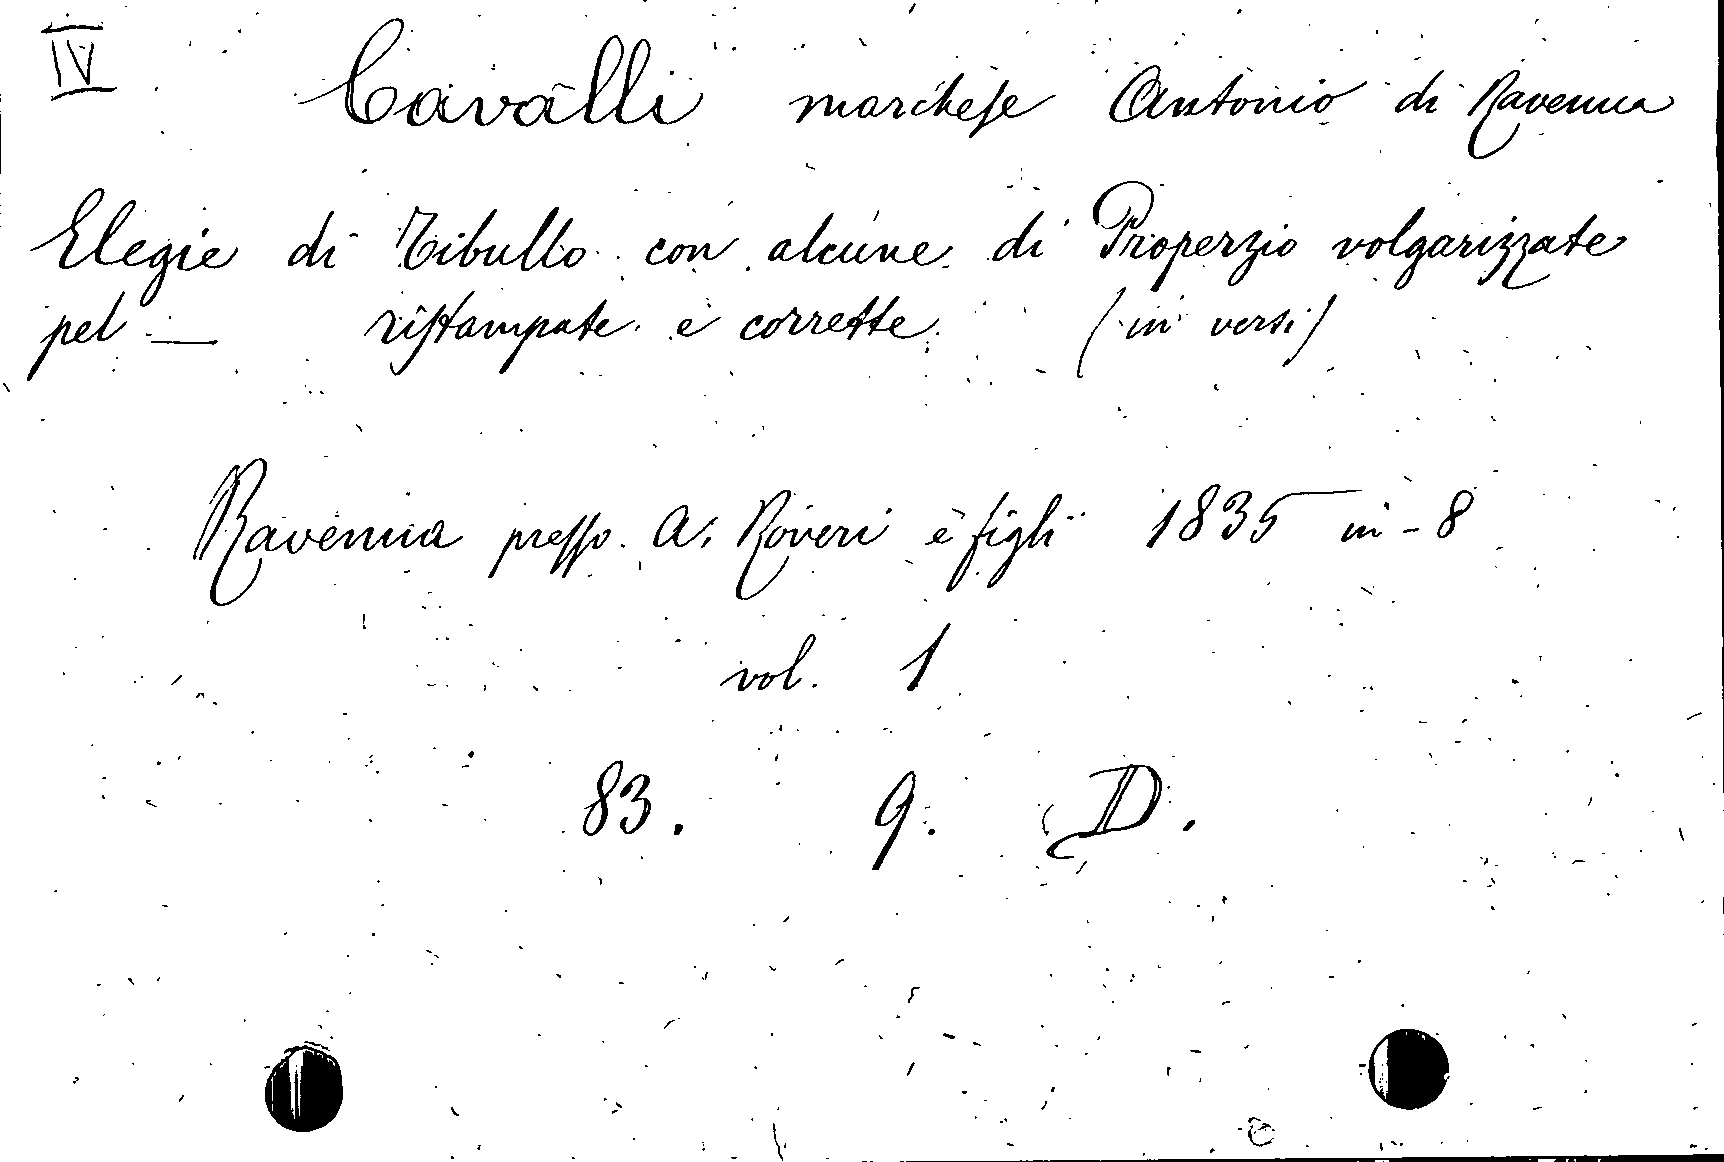 IV
Cavalli marchese Antonio di Ravenna
Elegie di Tibullo con alcune di Properzio volgarizzate
pel — ristampate e corrette (in versi)
Ravenna presso A. Roveri e figli 1835 in-8
vol. 1
83. 9. D.